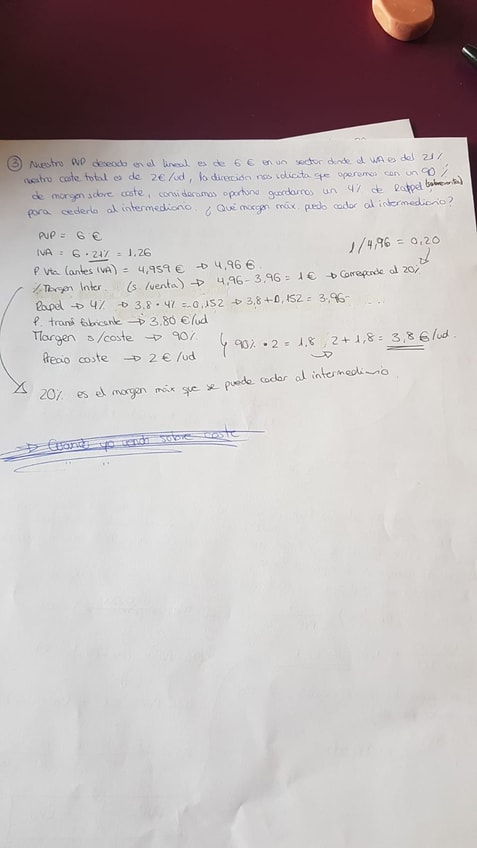 ③ Nuestro PVP deseado en el lineal es de 6 € en un sector donde el IVA es del 21%
nuestro coste total es de 2€/ud, la dirección nos solicita que operemos con un 90%
de margen sobre coste, consideramos oportuno guardarnos un 4% de Rappel (sobre venta)
para cederlo al intermediario. ¿Qué margen máx. puedo ceder al intermediario?
PVP = 6 €
IVA = 6 · 21% = 1,26
1/4,96 = 0,20
P. Vta (antes IVA) = 4,959 € → 4,96 €.
% Margen Inter. (s./venta) → 4,96 - 3,96 = 1 € → Corresponde al 20%
Rapel → 4% → 3,8 · 4% = 0,152 → 3,8 + 0,152 = 3,96
P. transf fabricante → 3,80 €/ud
Margen s/coste → 90% ↳ 90% · 2 = 1,8, 2 + 1,8 = 3,8 €/ud.
Precio coste → 2 € /ud
20% es el margen máx que se puede ceder al intermediario.
→ Cuando yo vendo sobre coste